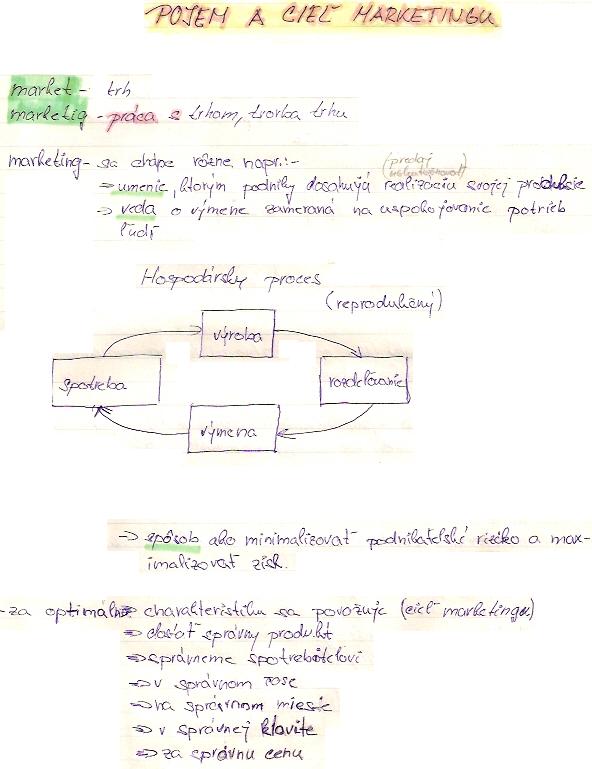 POJEM A CIEĽ MARKETINGU
market - trh
marketig - práca s trhom, tvorba trhu
marketing - sa chápe rôzne napr.:-
(predaj
uskutočnovať)
⇒ umenie, ktorým podniky dosahujú realizáciu svojej produkcie
→ veda o výmene zameraná na uspokojovanie potrieb
ľudí
Hospodársky proces
(reprodukčný)
výroba
spotreba
rozdeľovanie
výmena
→ spôsob ako minimalizovať podnikateľské riziko a max-
imalizovať zisk.
- za optimálne charakteristiku sa považuje (cieľ marketingu)
⇒ dostať správny produkt
⇒ správneme spotrebiteľovi
⇒ v správnom čase
⇒ na správnom mieste
⇒ v správnej kvalite
⇒ za správnu cenu